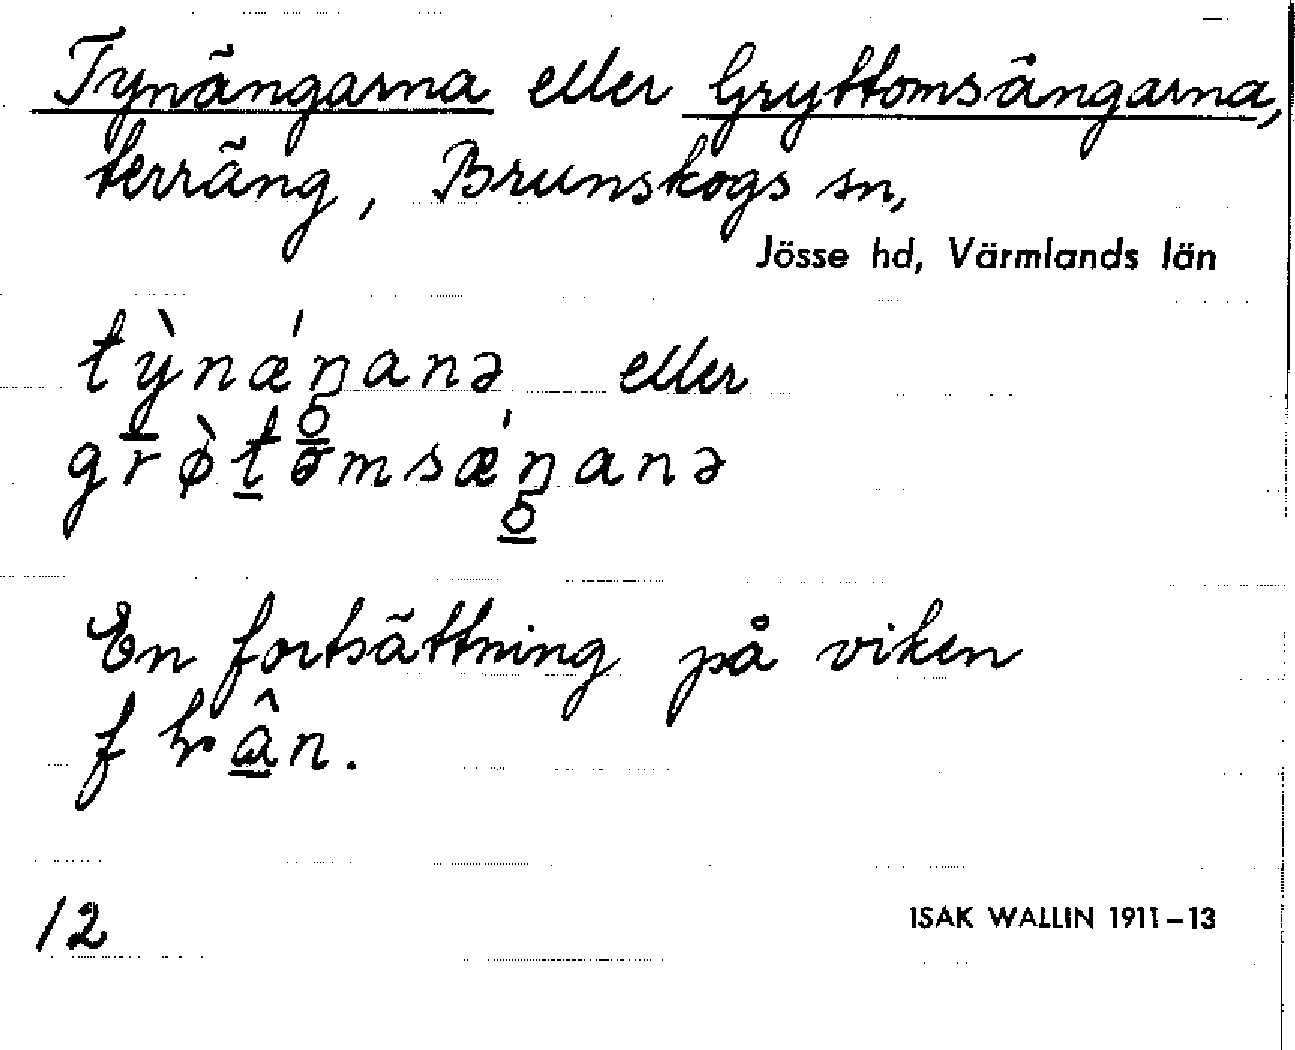 Tynängarna eller Gryttomsängarna,
terräng, Brunskogs sn,
Jösse hd, Värmlands län
tỳnǽŋanə eller
grø̀tömsǽŋanə
En fortsättning på viken
12
ISAK WALLIN 1911–13